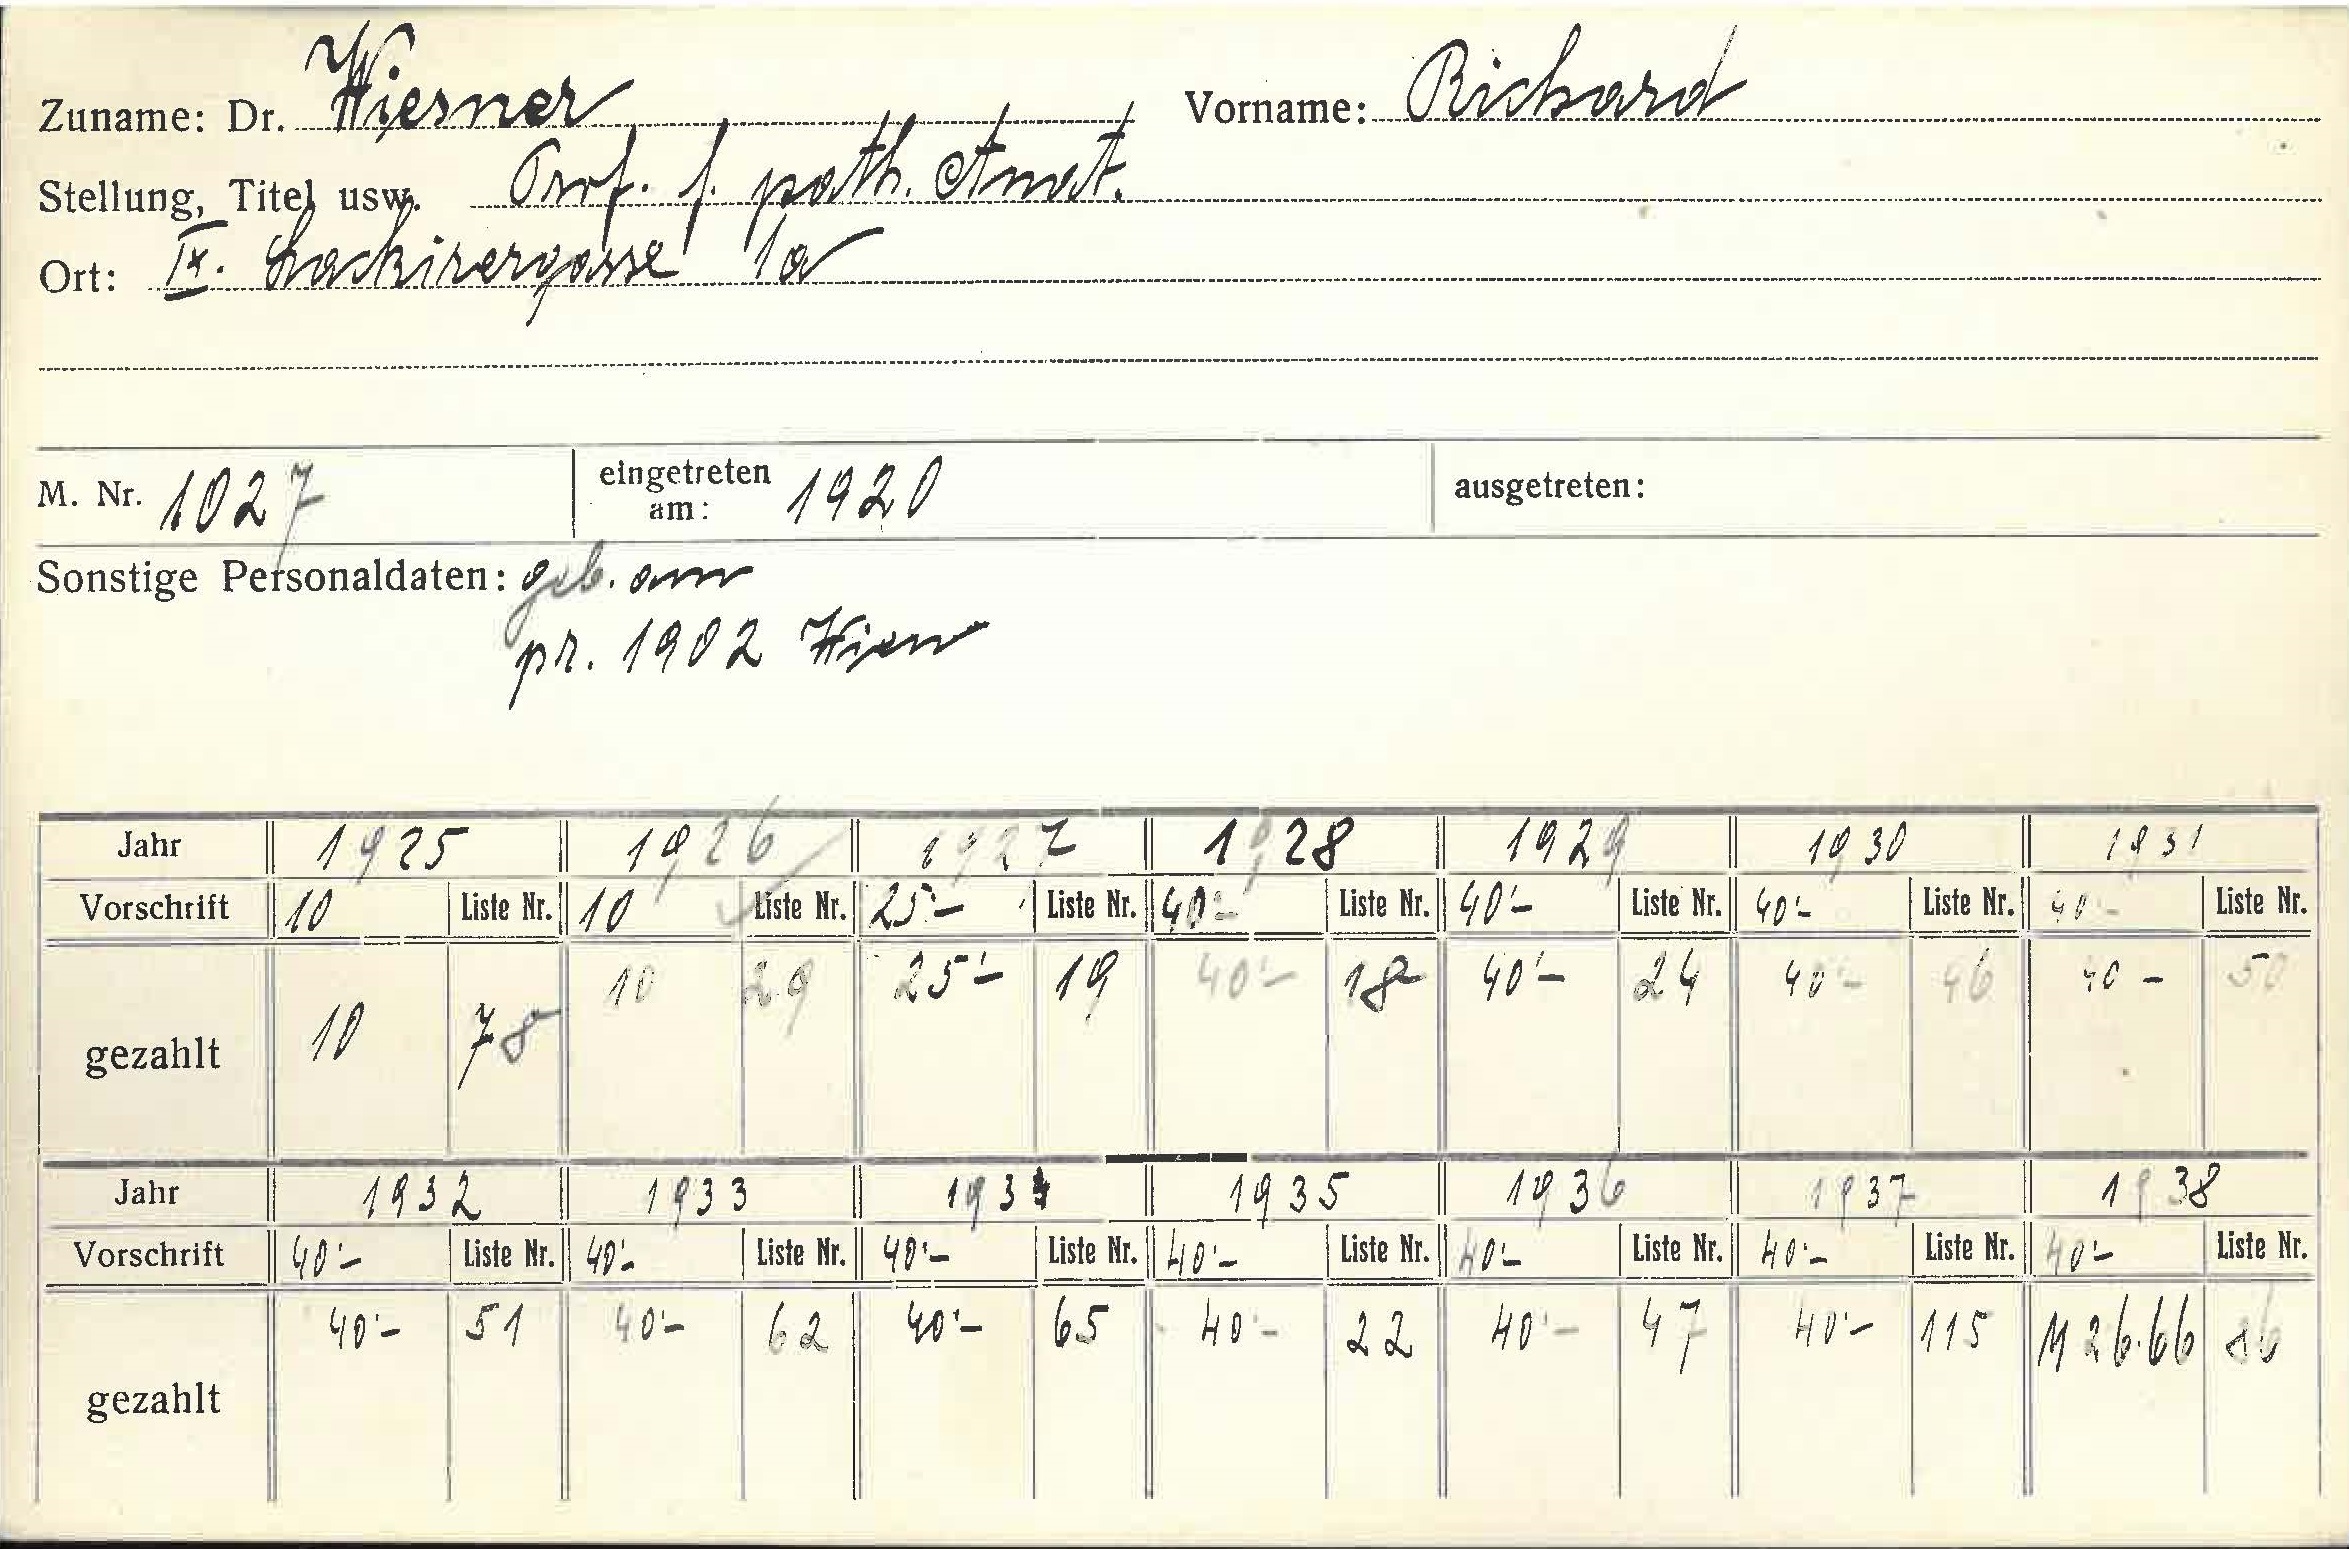 Zuname: Dr. Wiesner Vorname: Richard
Stellung, Titel usw. Prof. f. path. Anat.
Ort: IX. Lackirergasse 1a
M. Nr. 1027 eingetreten am: 1920 ausgetreten:
Sonstige Personaldaten: geb. am
pr. 1902 Wien
Jahr 1925 1926 1927 1928 1929 1930 1931
Vorschrift 10 Liste Nr. 10 Liste Nr. 25'- Liste Nr. 40'- Liste Nr. 40'- Liste Nr. 40'- Liste Nr. 40'- Liste Nr.
gezahlt 10 78 10 29 25'- 19 40'- 18 40'- 24 40'- 46 40 - 50
Jahr 1932 1933 1934 1935 1936 1937 1938
Vorschrift 40'- Liste Nr. 40'- Liste Nr. 40'- Liste Nr. 40'- Liste Nr. 40'- Liste Nr. 40'- Liste Nr. 40'- Liste Nr.
gezahlt 40'- 51 40'- 62 40'- 65 40'- 22 40'- 47 40'- 115 M 26.66